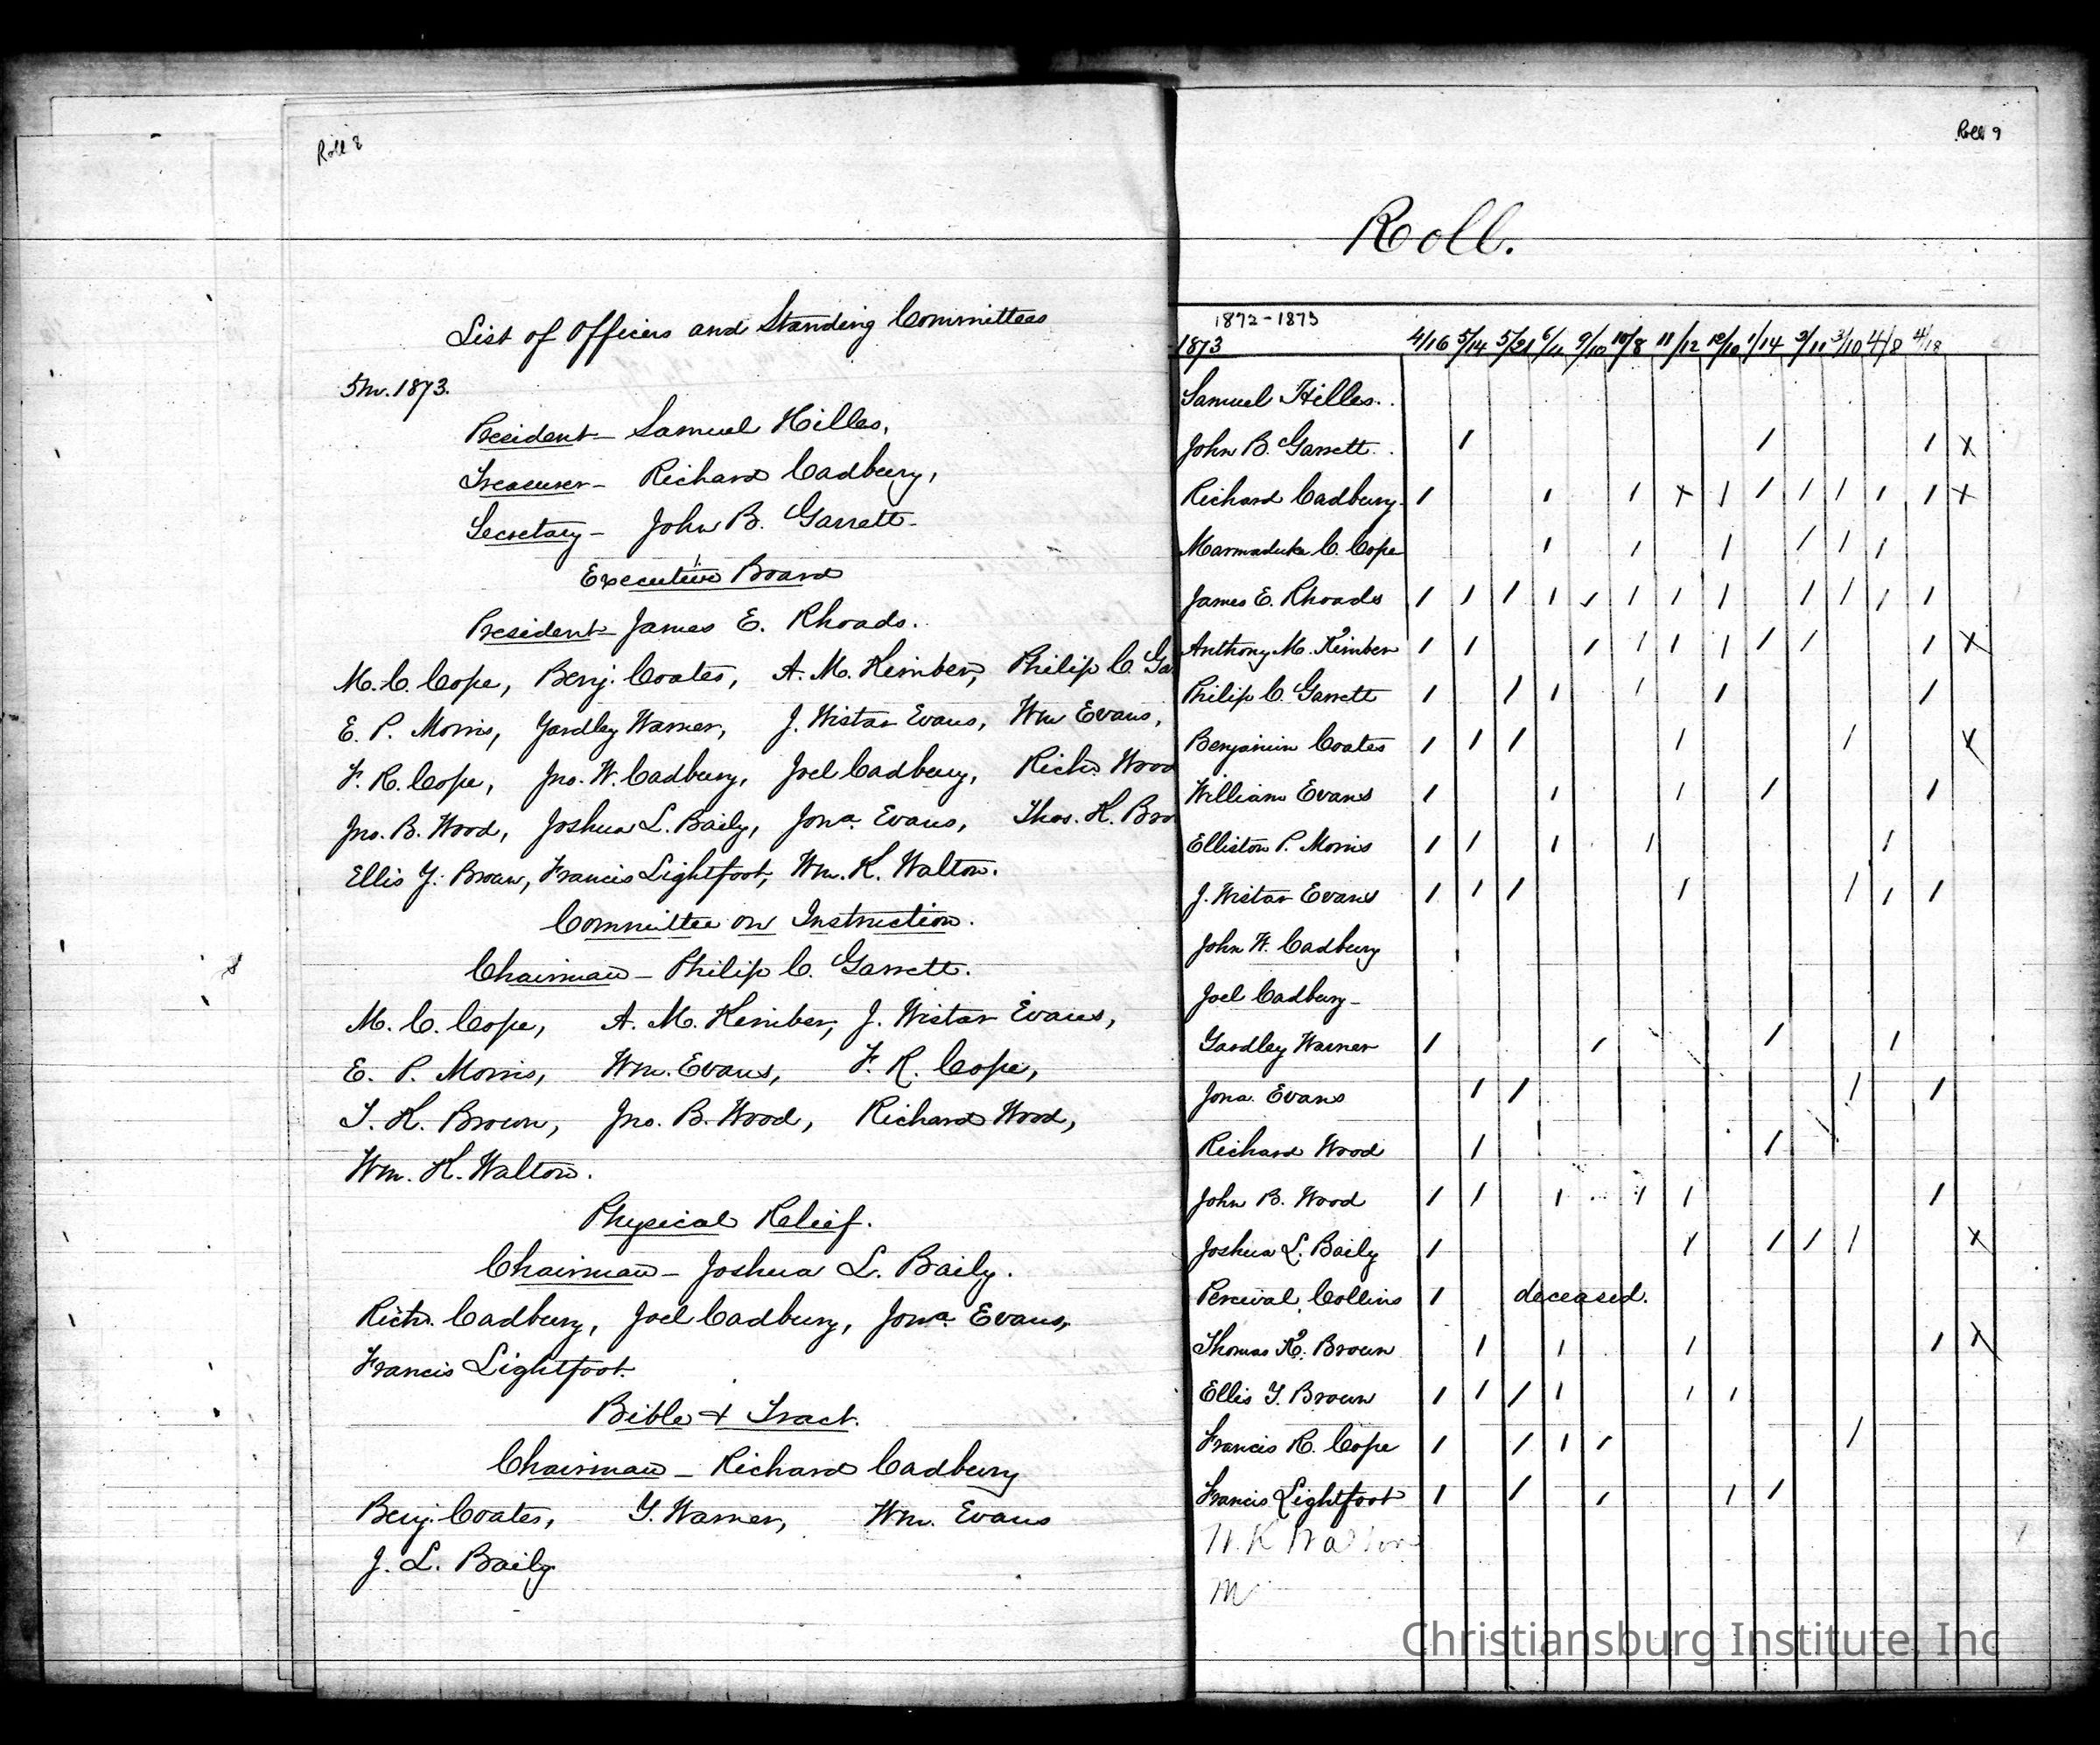 Roll 8
List of Officers and Standing Committees
5 mo. 1873.
President - Samuel Hilles,
Treasurer - Richard Cadbury,
Secretary - John B. Garrett -
Executive Board
President - James E. Rhoads.
M. C. Cope, Benj. Coates, A. M. Kimber, Philip C Ga
E. P. Morris, Yardley Warner, J. Wistar Evans, Wm Evans,
F. R. Cope, Jno. W. Cadbury, Joel Cadbury, Richd Wood
Jno. B. Wood, Joshua L. Baily, Jona. Evans, Thos. K. Bro
Ellis Y. Brown, Francis Lightfoot, Wm. K. Walton.
Committee on Instruction.
Chairman - Philip C. Garrett.
M. C. Cope, A. M. Kimber, J. Wistar Evans,
E. P. Morris, Wm. Evans, F. R. Cope,
T. K. Brown, Jno. B. Wood, Richard Wood,
Wm. K. Walton.
Physical Relief.
Chairman - Joshua L. Baily.
Richd. Cadbury, Joel Cadbury, Jona. Evans,
Francis Lightfoot.
Bible & Tract.
Chairman - Richard Cadbury
Benj. Coates, Y. Warner, Wm. Evans
J. L. Baily
Roll 9
Roll.
1872-1873
1873 4/16 5/14 5/21 6/11 9/10 10/8 11/12 12/10 1/14 2/11 3/10 4/8 4/18
Samuel Hilles.
John B. Garrett. / / / x
Richard Cadbury. / / / x / / / / / / x
Marmaduke C. Cope / / / / / /
James E. Rhoads / / / / / / / / / / / /
Anthony M. Kimber / / / / / / / / / x
Philip C. Garrett / / / / / /
Benjamin Coates / / / / / x
William Evans / / / / /
Elliston P. Morris / / / / /
J. Wistar Evans / / / / / / /
John W. Cadbury
Joel Cadbury -
Yardley Warner / / / /
Jona. Evans / / / /
Richard Wood / /
John B. Wood / / / / / /
Joshua L. Baily / / / / / x
Percival Collins / deceased.
Thomas K. Brown / / / / x
Ellis Y. Brown / / / / / /
Francis R. Cope / / / / /
Francis Lightfoot / / / / /
W. K Walton
M
Christiansburg Institute, Inc